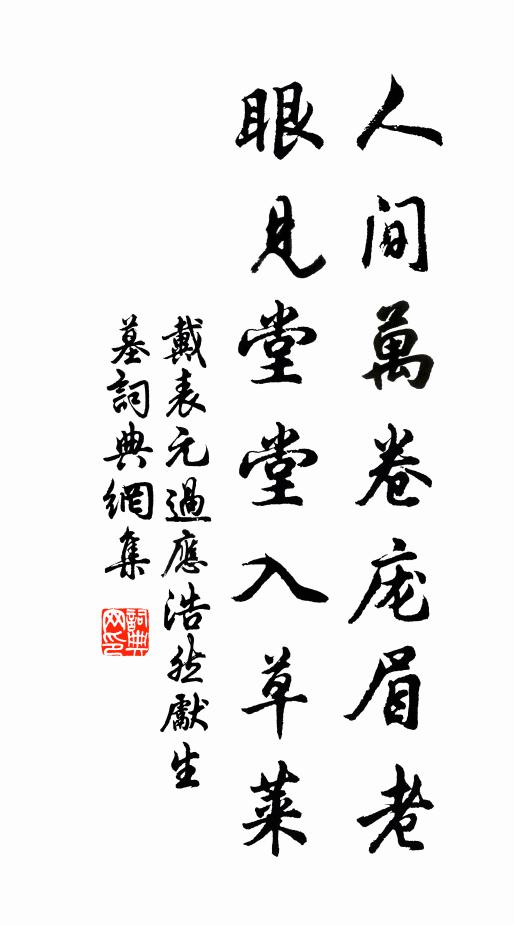 人間萬卷庞眉老
眼見堂堂入草萊
戴表元過應浩然獻生
墓詞典網集
詞典
网印